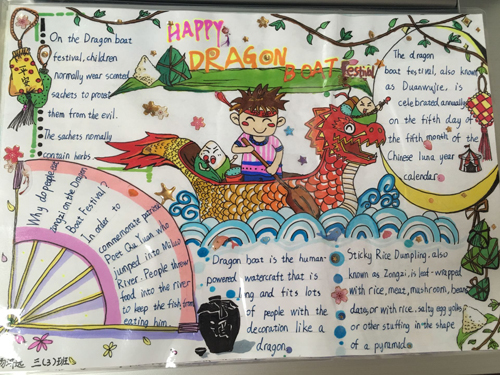 HAPPY
DRAGON
BOAT
Festival
On the Dragon boat
festival, children
normally wear scented
sachets to protest
them from the evil.
The sachets nomally
contain herbs.
平安
The dragon
boat festival, also known
as Duanwujie, is
celebrated annually
on the fifth day of
the fifth month of the
Chinese luna year
calendar.
Why do people
zongzi on the Dragon
Boat Festival?
In order to
commemorate patriotic
Poet Qu Yuan who
jumped into Miluo
River. People throw
food into the river
to keep the fish from
eating him.
Dragon boat is the human
powered watercraft that is
ng and fits lots
of people with the
decoration like a
dragon.
Sticky Rice Dumpling, also
known as Zongzi, is leaf-wrapped
with rice, meat, mushroom, bean
dates, or with rice, salty egg yolks
or other stuffing in the shape
of a pyramid.
三(3)班